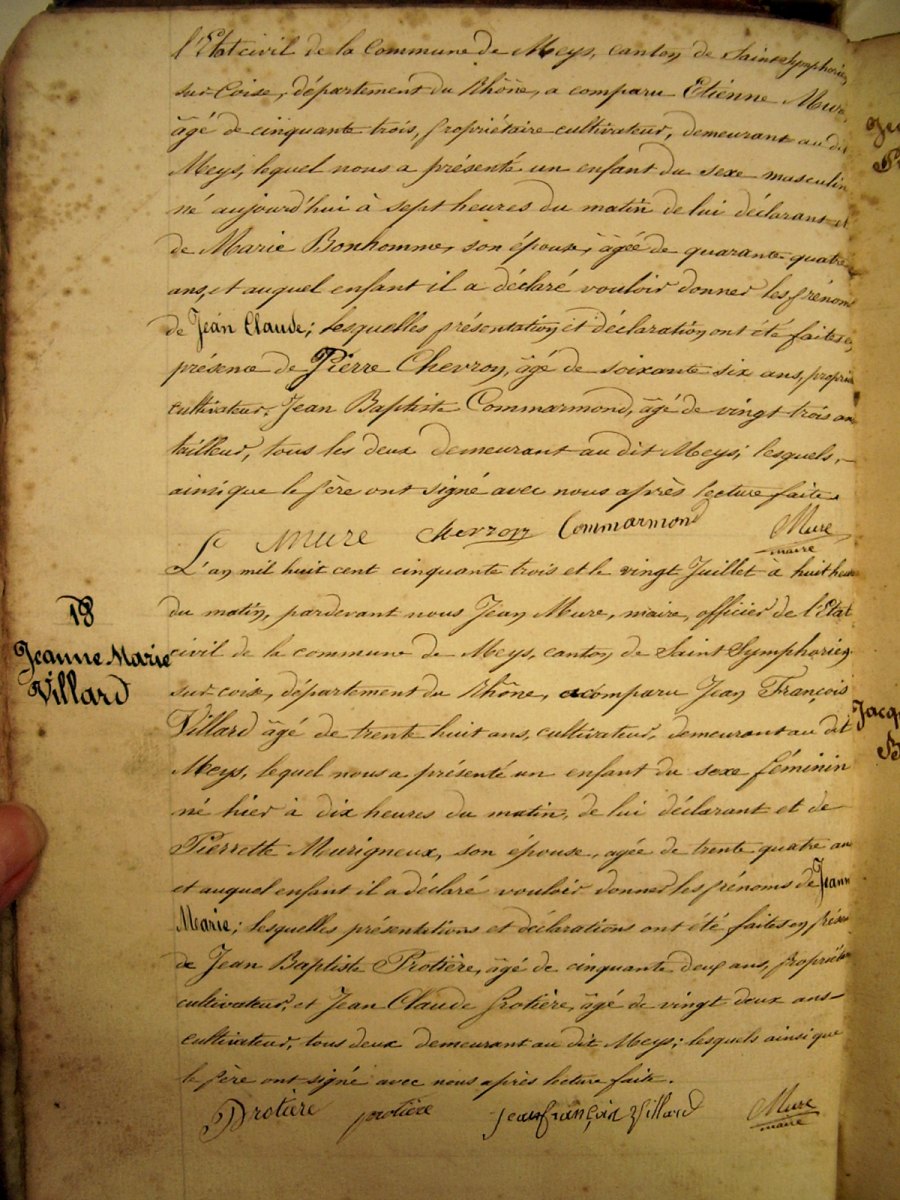 l'Etat civil de la Commune de Meys, canton de Saint Symphorien
sur Coise, département du Rhône, a comparu Etienne Mure,
âgé de cinquante trois, propriétaire cultivateur, demeurant au dit
Meys, lequel nous a présenté un enfant du sexe masculin
né aujourd'hui à sept heures du matin de lui déclarant et
de Marie Bonhomme, son épouse, âgée de quarante quatre
ans, et auquel enfant il a déclaré vouloir donner les prénoms
de Jean Claude; lesquelles présentation et déclaration ont été faites en
présence de Pierre Chevron, âgé de soixante six ans, propri
cultivateur, Jean Baptiste Commarmond, âgé de vingt trois ans
tailleur, tous les deux demeurant au dit Meys, lesquels,
ainsi que le père ont signé avec nous après lecture faite.
Mure chevron Commarmond Mure
maire
L'an mil huit cent cinquante trois et le vingt Juillet à huit heu
18
du matin, pardevant nous Jean Mure, maire, officier de l'Etat
Jeanne Marie
civil de la commune de Meys, canton de Saint Symphorien
Villard
sur coise, département du Rhône, a comparu Jean François
Villard âgé de trente huit ans, cultivateur, demeurant au dit
Meys, lequel nous a présenté un enfant du sexe féminin
né hier à dix heures du matin, de lui déclarant et de
Pierrette Murigneux, son épouse, agée de trente quatre an
et auquel enfant il a déclaré vouloir donner les prénoms de Jeann
Marie; lesquelles présentations et déclarations ont été faites en présen
de Jean Baptiste Protière, âgé de cinquante deux ans, propriétai
cultivateur, et Jean Claude Protière, âgé de vingt deux ans
cultivateur, tous deux demeurant au dit Meys; lesquels ainsi que
le père ont signé avec nous après lecture faite.
Protière protière jean françois Villard Mure
maire
Jacq